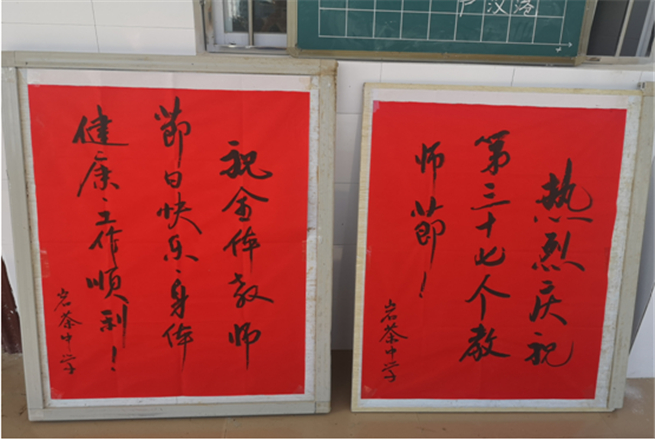 热烈庆祝
第三十七个教
师節！
岩茶中学
祝全体教师
節日快乐、身体
健康、工作顺利！
岩茶中学
汉落